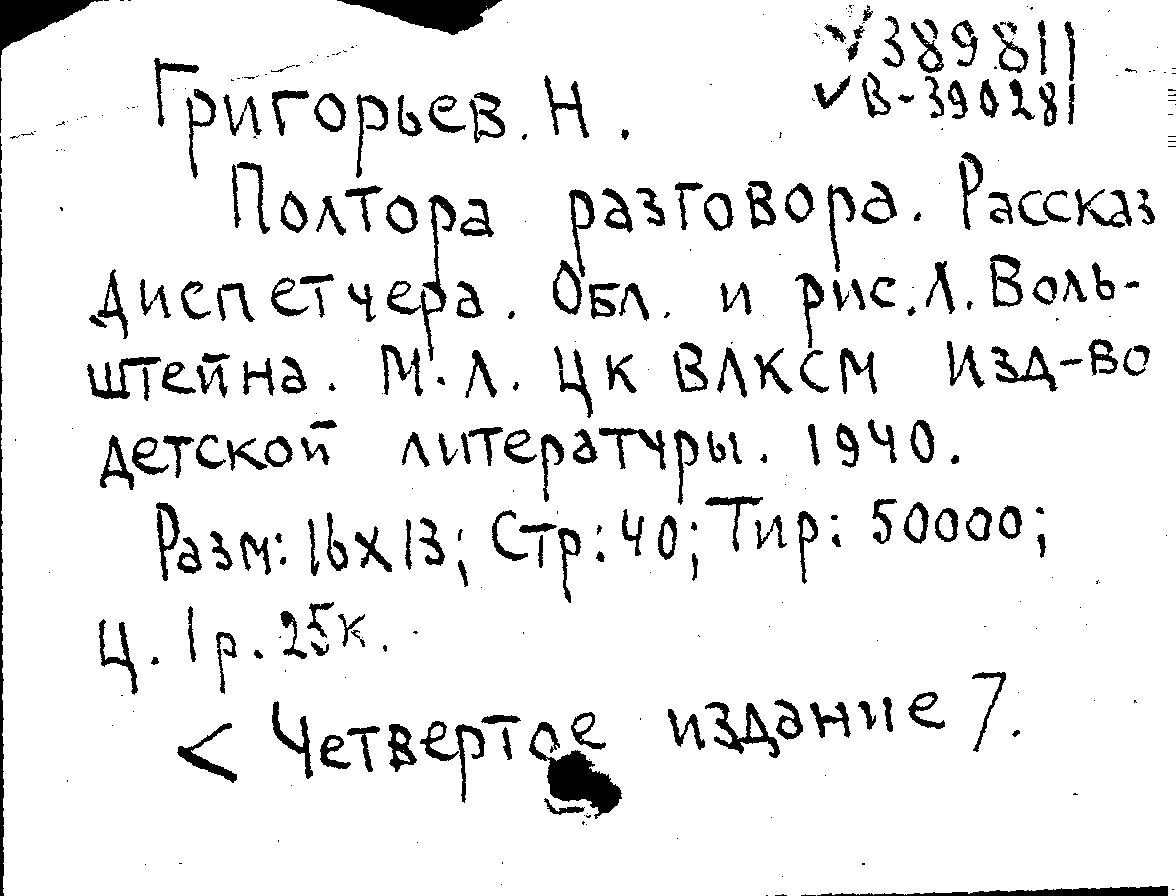 ✓389811
✓В-390281
Григорьев. Н.
Полтора разговора. Рассказ
диспетчера. Обл. и рис. Л. Воль-
штейна. М. Л. ЦК ВЛКСМ Изд-во
детской литературы. 1940.
Разм: 16x13; Стр: 40; Тир: 50000;
Ц. 1р. 25к.
< Четвертое издание 7.